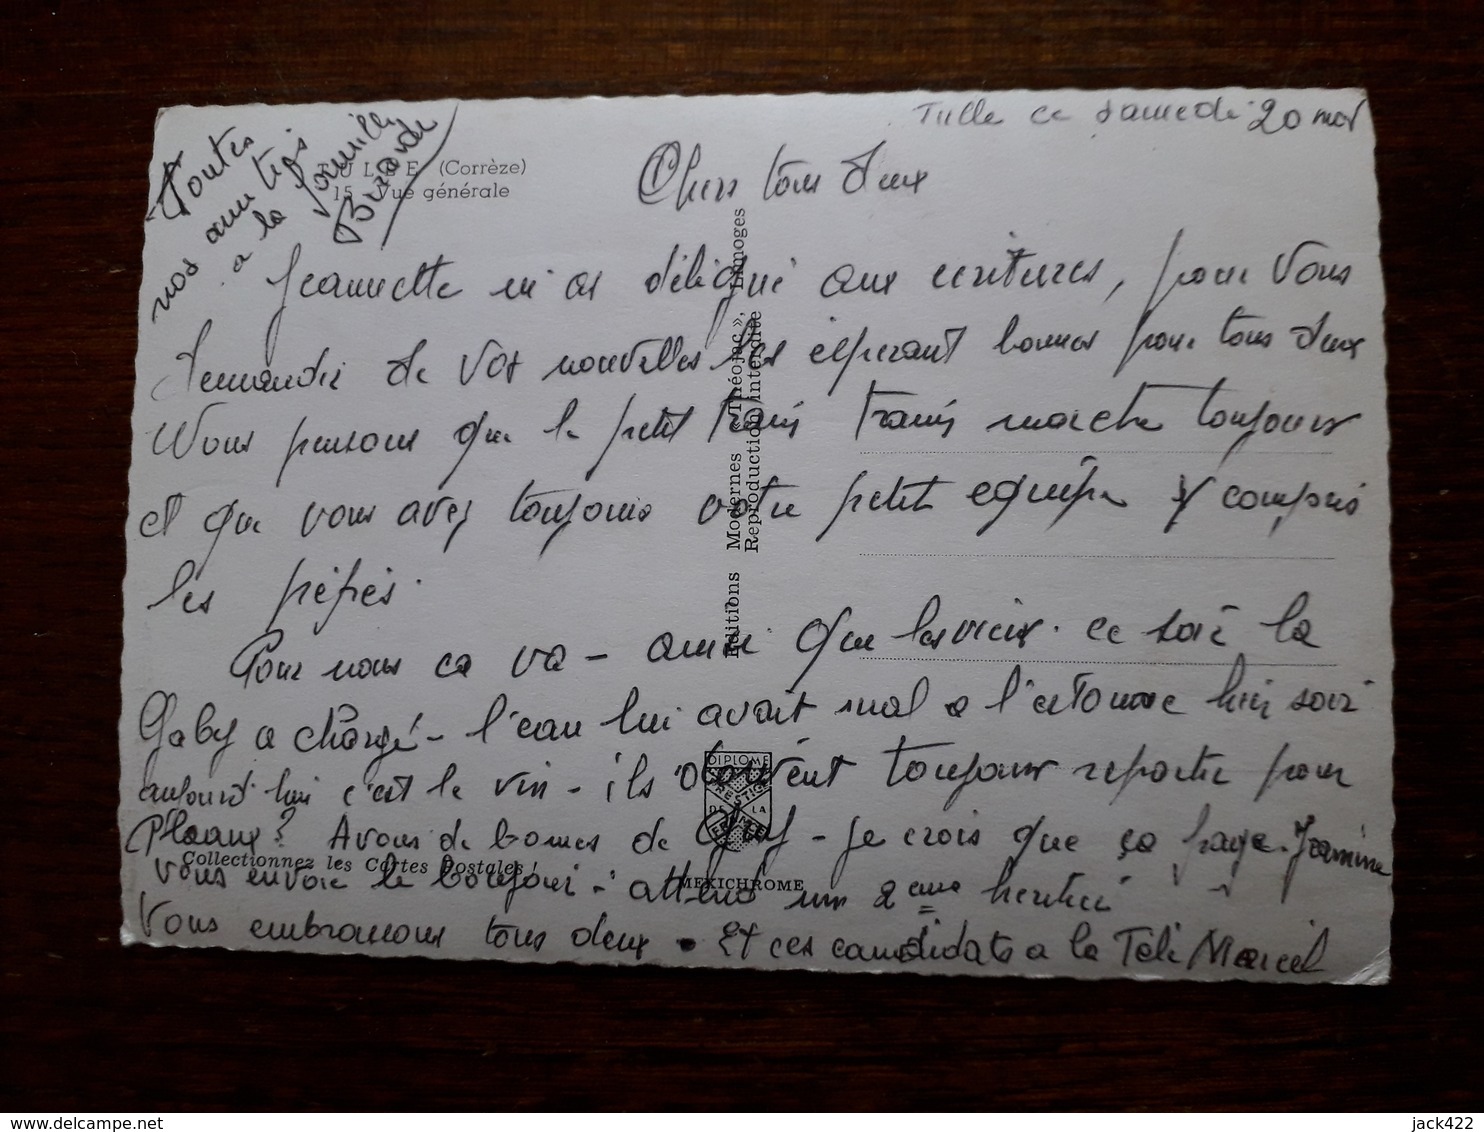 Tulle ce samedi 20 nov
Toutes
nos amitiés
a la famille
TULLE (Corrèze)
15 Vue générale
Chers tous deux
Jeannette m'as délégué aux ecritures, pour Vous
demander de Vos nouvelles les espérant bonnes pour tous deux
Nous pensons que le petit train train marche toujours
et que vous avez toujours votre petit equipe y compris
les pépés.
Pour nous ca va - ainsi que les vieux. ce soir la
Gaby a chargé - l'eau lui avait mal a l'estomac hier soir
aujourd'hui c'est le vin - ils doivent toujours repartir pour
? Avons de bonnes de Guy - je crois que ça Jeannine
vous envoie le bonjour - attend un 2eme heritié
Vous embrassons tous deux. Et ces candidats a la Télé Marcel
Editions Modernes « Théojac », Limoges
Reproduction interdite
DIPLOME
PRESTIGE
DE LA
FRANCE
Collectionnez les Cartes Postales
MEXICHROME
jack422